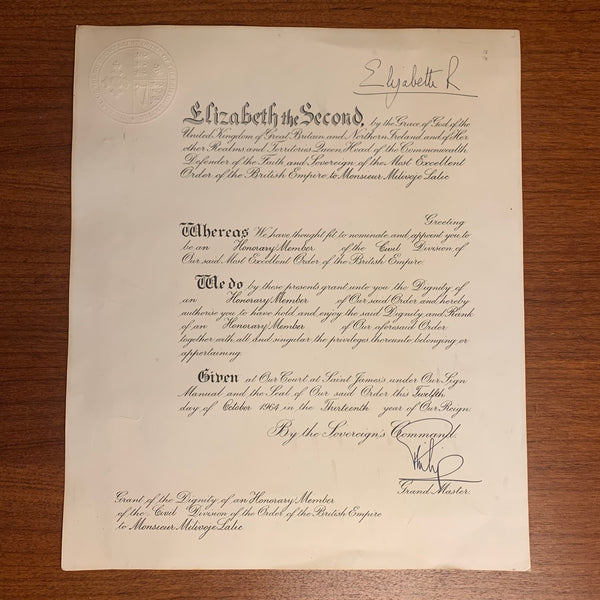 Elizabeth R
Elizabeth the Second, by the Grace of God of the
United Kingdom of Great Britain and Northern Ireland and of Her
other Realms and Territories Queen, Head of the Commonwealth,
Defender of the Faith and Sovereign of the Most Excellent
Order of the British Empire to Monsieur Milivoje Lalic
Greeting
Whereas We have thought fit to nominate and appoint you to
be an Honorary Member of the Civil Division of
Our said Most Excellent Order of the British Empire
We do by these presents grant unto you the Dignity of
an Honorary Member of Our said Order and hereby
authorise you to have hold and enjoy the said Dignity and Rank
of an Honorary Member of Our aforesaid Order
together with all and singular the privileges thereunto belonging or
appertaining.
Given at Our Court at Saint James's under Our Sign
Manual and the Seal of Our said Order this Twelfth
day of October 1964 in the Thirteenth year of Our Reign.
By the Sovereign's Command.
Philip
Grand Master.
Grant of the Dignity of an Honorary Member
of the Civil Division of the Order of the British Empire
to Monsieur Milivoje Lalic